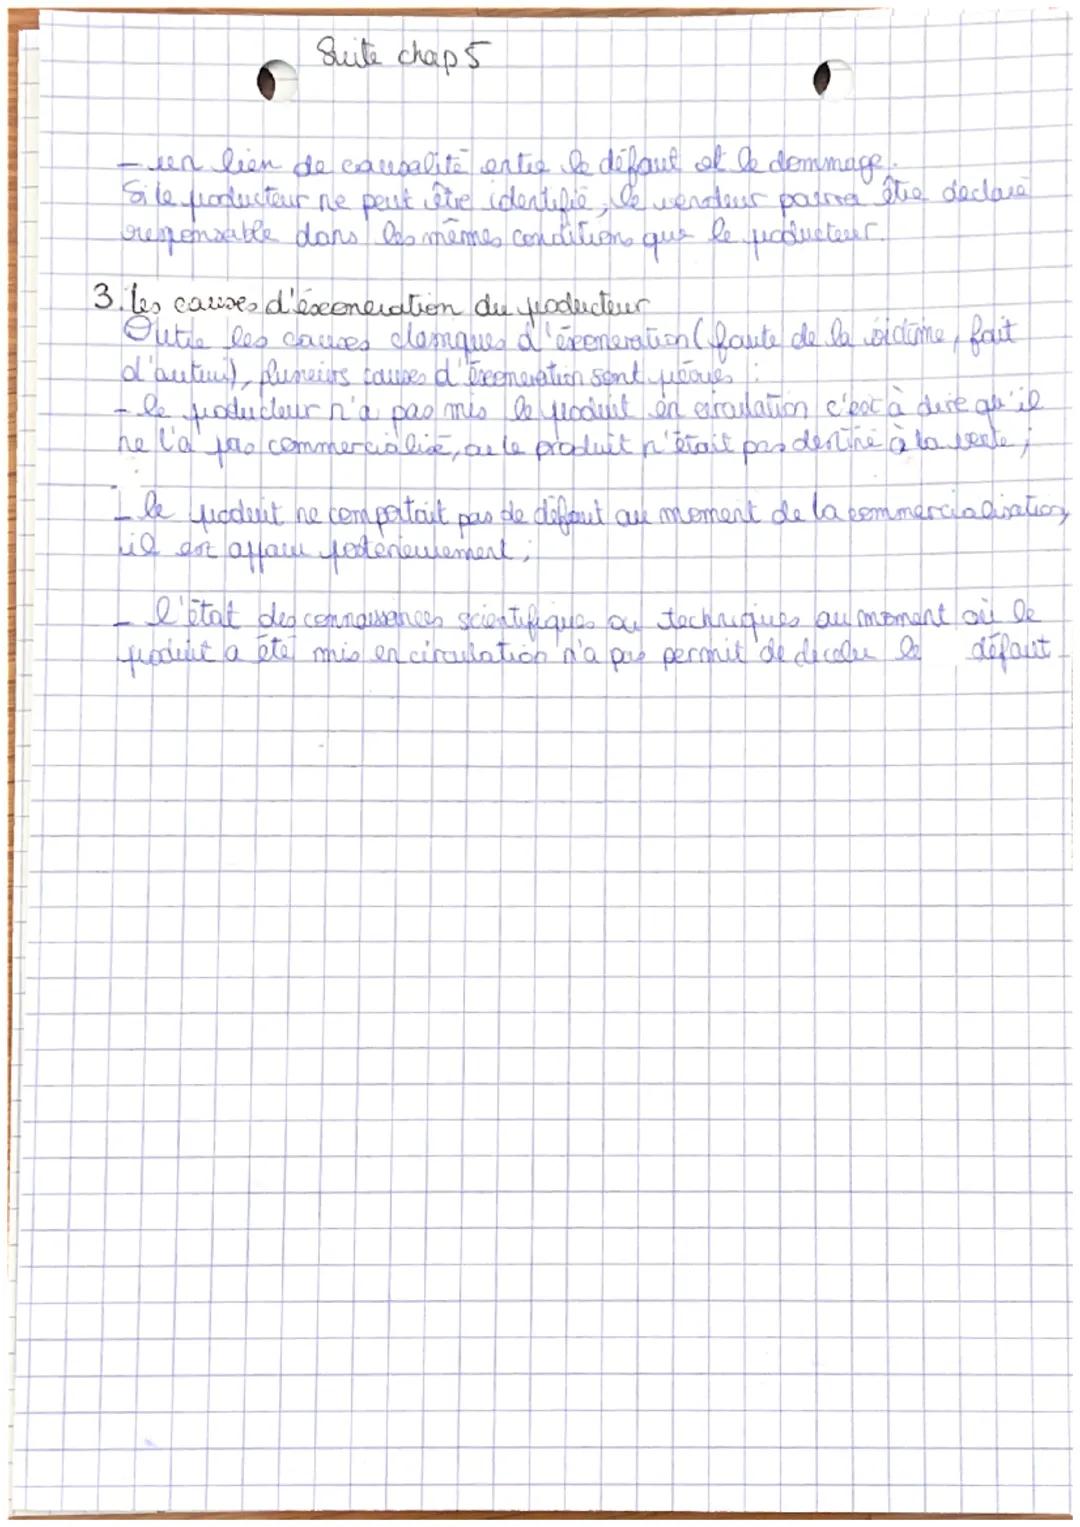 Suite chap 5
- un lien de causalité entre le défaut et le dommage.
Si le producteur ne peut être identifié, le vendeur pourra être déclaré
responsable dans les mêmes conditions que le producteur.
3. Les causes d'éxoneration du producteur
Outre les causes classiques d'éxoneration (faute de la victime, fait
d'autrui), plusieurs causes d'éxoneration sont prévues :
- le producteur n'a pas mis le produit en circulation c'est à dire qu'il
ne l'a pas commercialisé, ou le produit n'était pas destiné à la vente ;
- le produit ne comportait pas de défaut au moment de la commercialisation,
il est apparu postérieurement ;
- l'état des connaissances scientifiques ou techniques au moment où le
produit a été mis en circulation n'a pas permit de déceler le défaut.